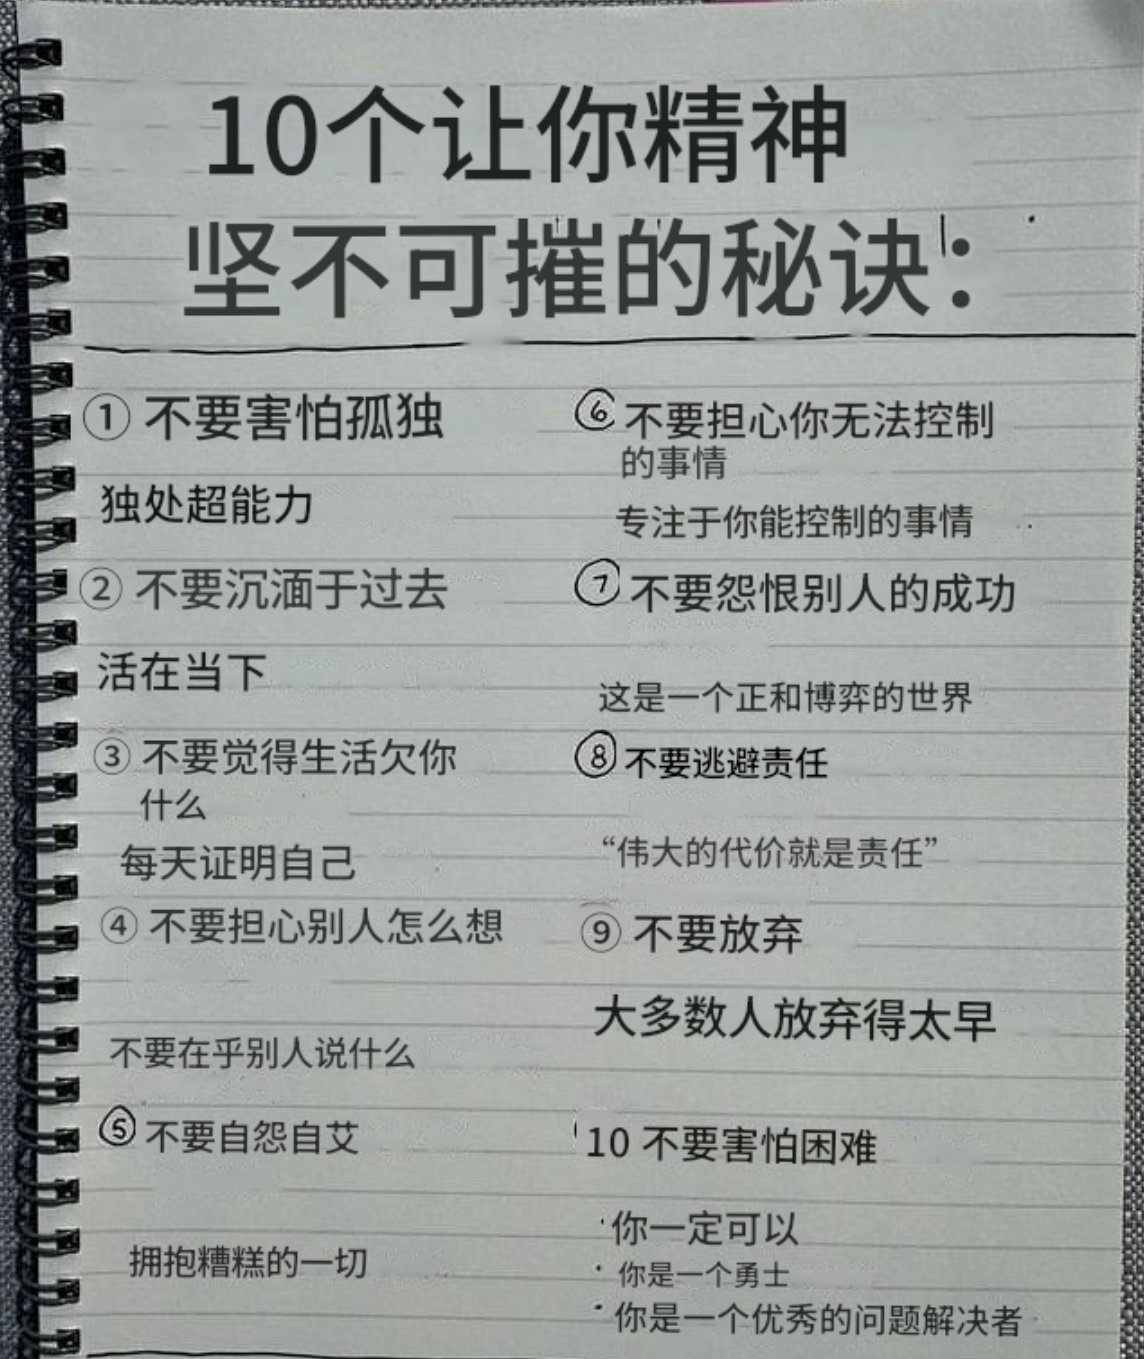 10个让你精神
坚不可摧的秘诀：
① 不要害怕孤独
独处超能力
② 不要沉湎于过去
活在当下
③ 不要觉得生活欠你
什么
每天证明自己
④ 不要担心别人怎么想
不要在乎别人说什么
⑤ 不要自怨自艾
拥抱糟糕的一切
⑥ 不要担心你无法控制
的事情
专注于你能控制的事情
⑦ 不要怨恨别人的成功
这是一个正和博弈的世界
⑧ 不要逃避责任
“伟大的代价就是责任”
⑨ 不要放弃
大多数人放弃得太早
10 不要害怕困难
·你一定可以
· 你是一个勇士
· 你是一个优秀的问题解决者